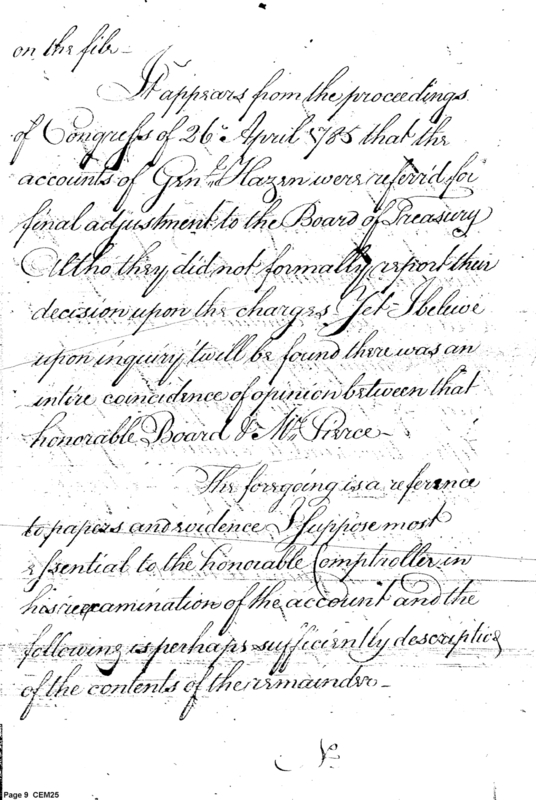 on the file —
It appears from the proceedings
of Congress of 26th April 1785 that the
accounts of Genl. Hazen were referr'd for
final adjustment to the Board of Treasury
Altho they did not formally report their
decision upon the charges Yet I beleive
upon inquiry 'twill be found there was an
intire coincidence of opinion between that
honorable Board & Mr. Pierce —
The foregoing is a reference
to papers and evidence I suppose most
essential to the honorable Comptroller in
his reexamination of the account and the
following is perhaps sufficiently descriptive
of the contents of the remainder —
No
Page 9 CEM25